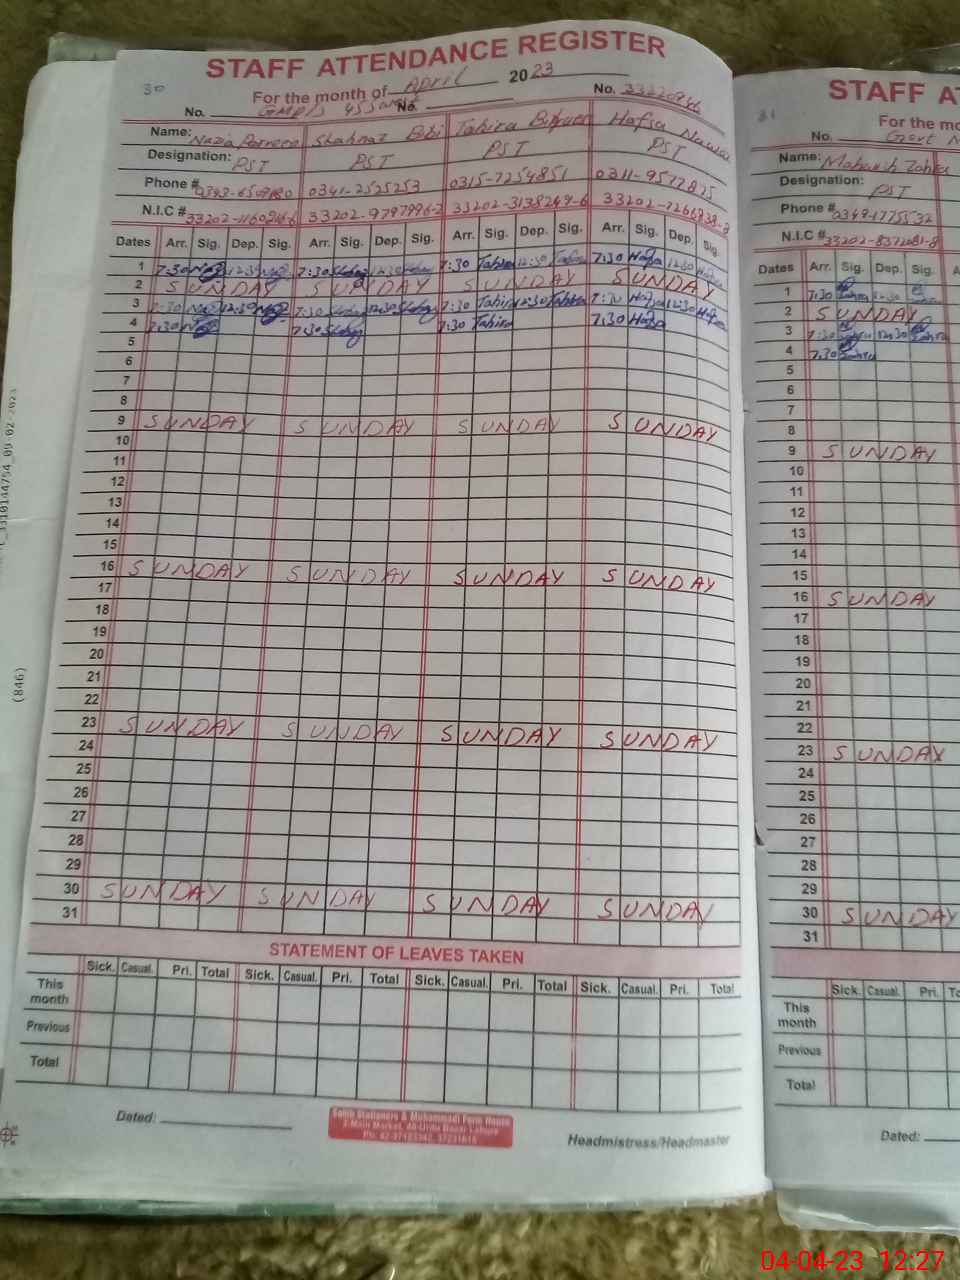 STAFF ATTENDANCE REGISTER
30
For the month of April 2023
No. GMP/S 45 No. No. 33220946
Name: Nazia Parveen Shahnaz Bibi Tahira Hafsa Nawaz
Designation: PST PST PST PST
Phone # 0341-2525253 0315-7254851 0311-9577825
N.I.C # 33202-9797996-2 33202-3138249-6 33202-7266838-2
Dates Arr. Sig. Dep. Sig. Arr. Sig. Dep. Sig. Arr. Sig. Dep. Sig. Arr. Sig. Dep. Sig.
1 7:30 12:30 7:30 12:30 7:30 Tahira 12:30 Tahira 7:30 Hafsa 12:30 Hafsa
2 SUNDAY SUNDAY SUNDAY SUNDAY
3 7:30 12:30 7:30 12:30 7:30 Tahira 12:30 Tahira 7:30 Hafsa 12:30 Hafsa
4 7:30 7:30 7:30 Tahira 7:30 Hafsa
5
6
7
8
9 SUNDAY SUNDAY SUNDAY SUNDAY
10
11
12
13
14
15
16 SUNDAY SUNDAY SUNDAY SUNDAY
17
18
19
20
21
22
23 SUNDAY SUNDAY SUNDAY SUNDAY
24
25
26
27
28
29
30 SUNDAY SUNDAY SUNDAY SUNDAY
31
STATEMENT OF LEAVES TAKEN
Sick. Casual. Pri. Total Sick. Casual. Pri. Total Sick. Casual. Pri. Total Sick. Casual. Pri. Total
This month
Previous
Total
Dated:
Salib Stationers & Muhammadi Form House
Headmistress/Headmaster
(846)
STAFF AT
31
For the mo
No. Govt
Name: Mahwish Zahra
Designation: PST
Phone # 0349-1775532
N.I.C # 33202-8372081-8
Dates Arr. Sig. Dep. Sig. A
1 7:30 Zahra 12:30 Zahra
2 SUNDAY
3 7:30 Zahra 12:30 Zahra
4 7:30 Zahra
5
6
7
8
9 SUNDAY
10
11
12
13
14
15
16 SUNDAY
17
18
19
20
21
22
23 SUNDAY
24
25
26
27
28
29
30 SUNDAY
31
Sick. Casual. Pri. To
This month
Previous
Total
Dated:
04-04-23 12:27